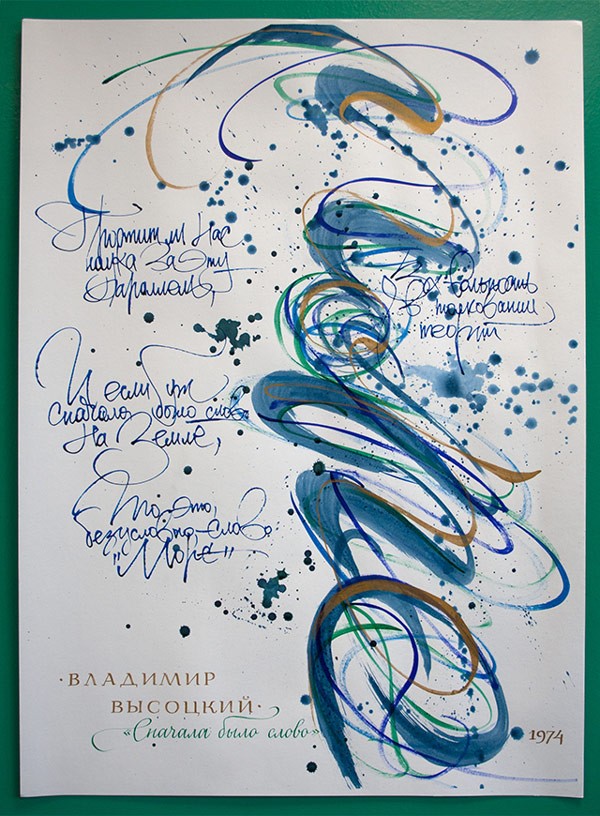 Простит ли Нас
наука За Эту
параллель,
За вольность
в толковании
теорий
И если уж
сначала было слово
На Земле,
То это,
безусловно, - слово
"Море"
·ВЛАДИМИР
ВЫСОЦКИЙ·
«Сначала было слово»
1974